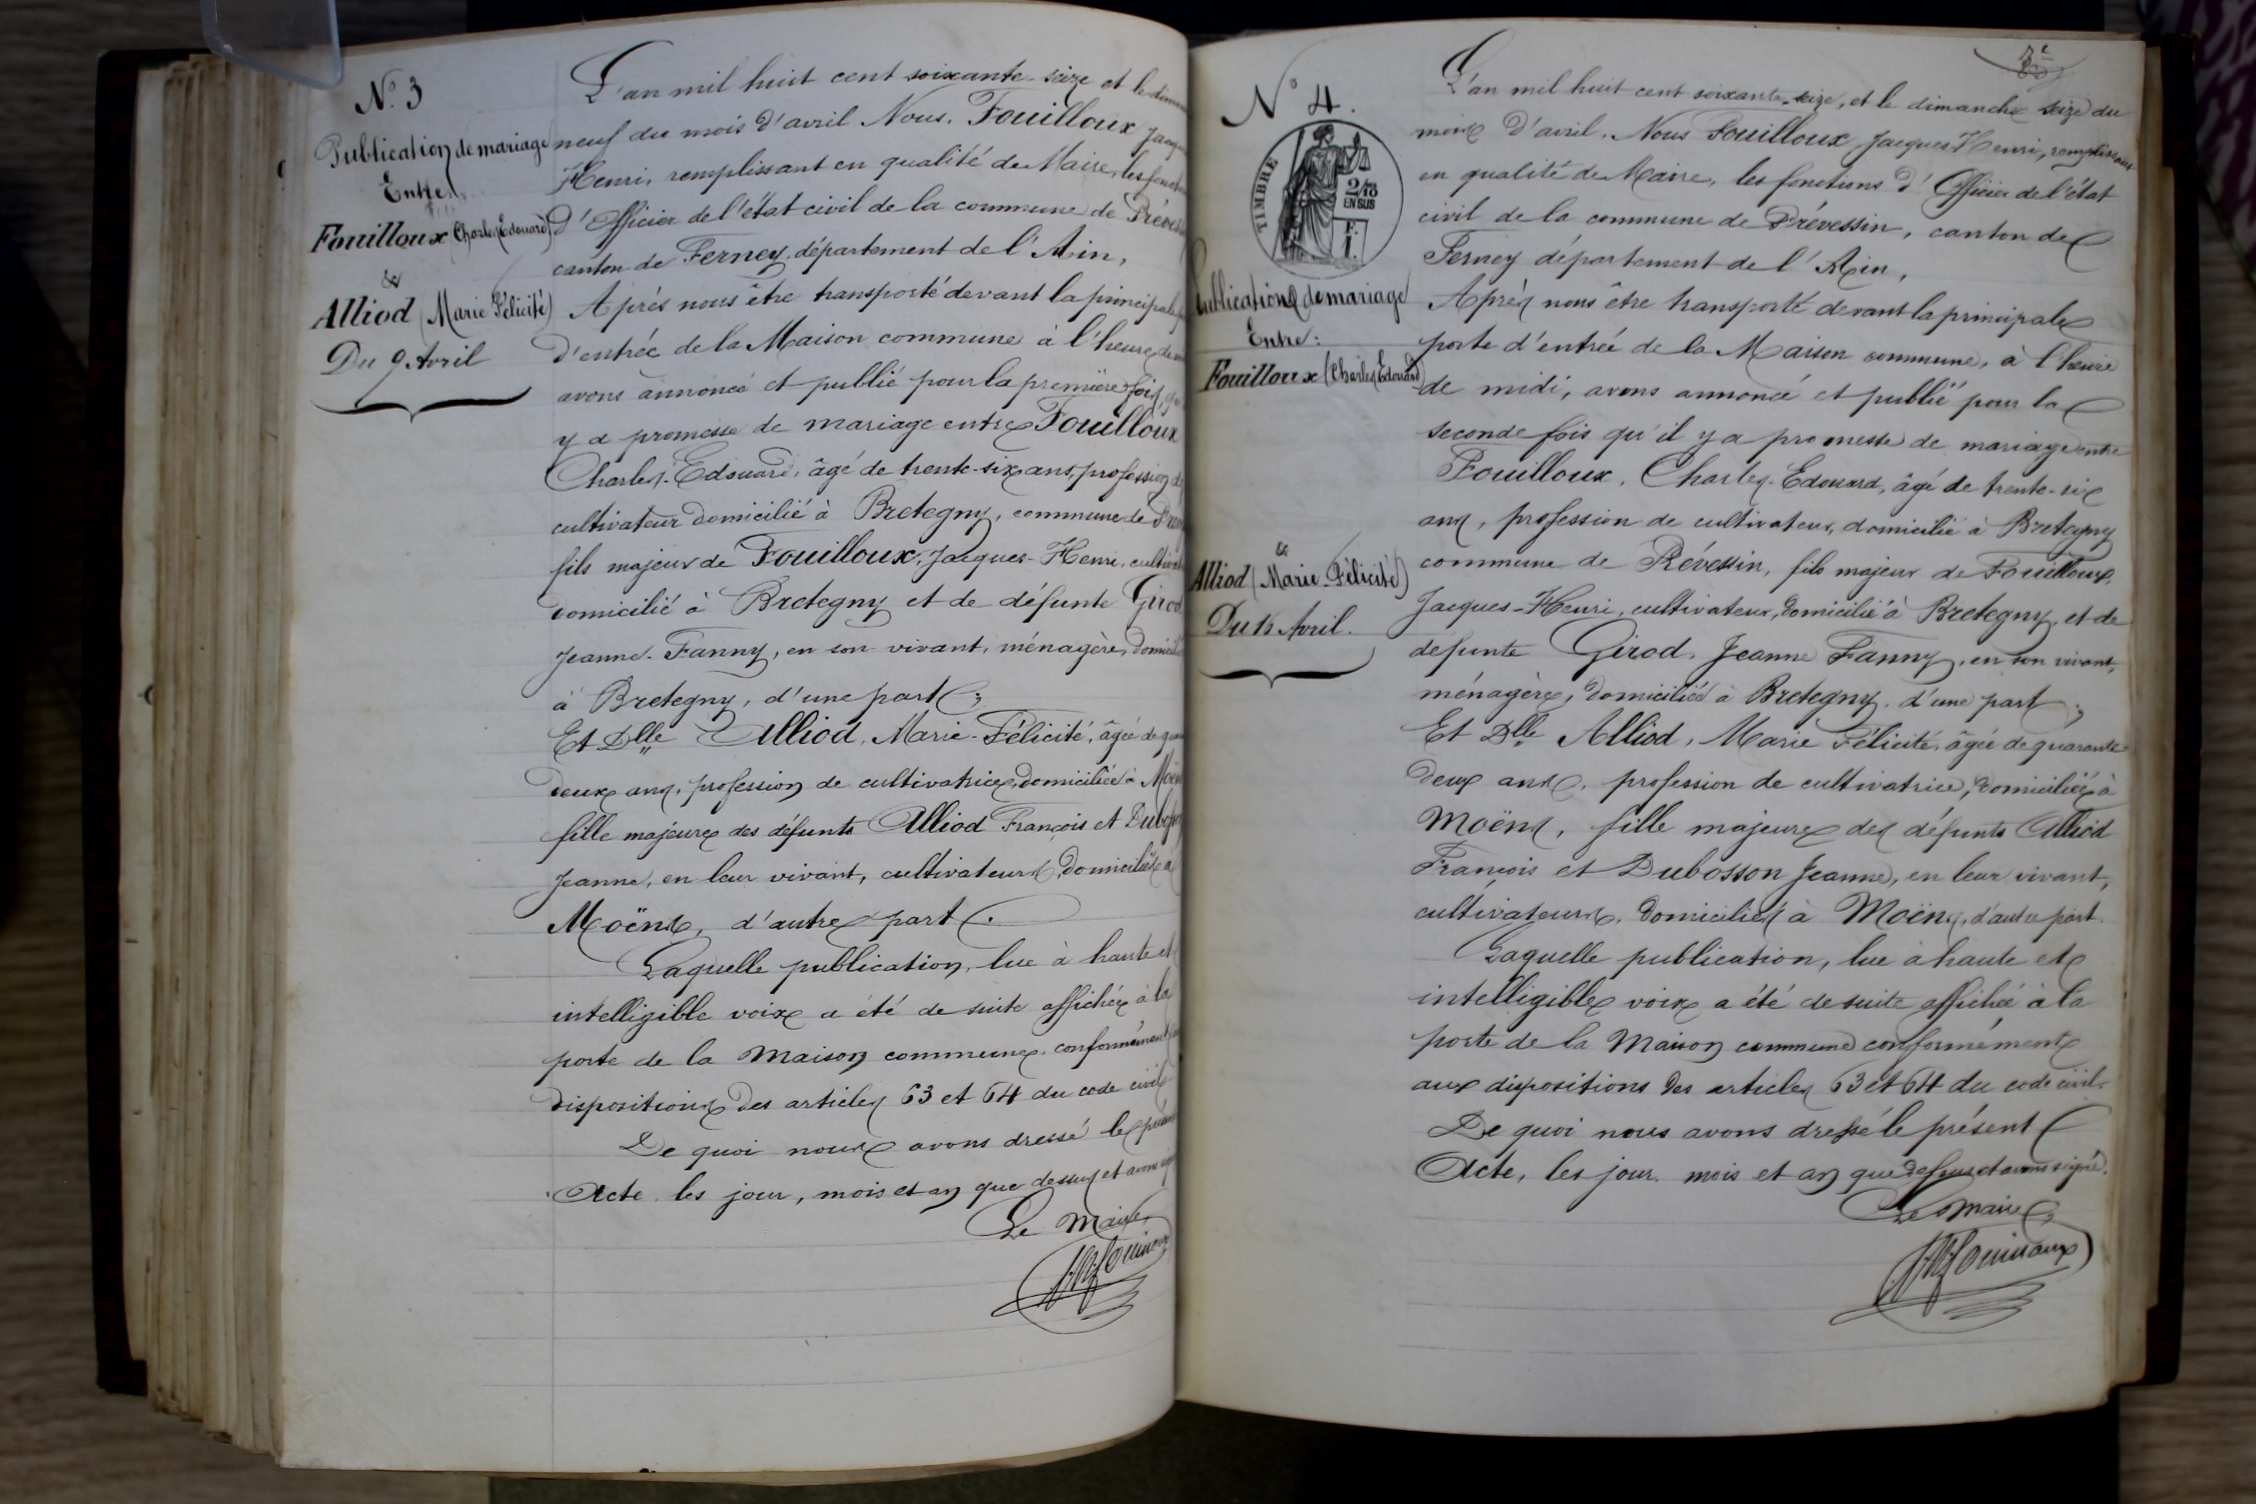 N° 3
Publication de mariage
Entre
Fouilloux (Charles Edouard)
&
Alliod (Marie Félicité)
Du 9 Avril
L'an mil huit cent soixante-seize et le
neuf du mois d'avril Nous, Fouilloux
Henri, remplissant en qualité de Maire, les
d'Officier de l'état civil de la commune de
canton de Ferney, département de l'Ain,
Après nous être transporté devant la principale
d'entrée de la Maison commune à l'heure
avons annoncé et publié pour la première fois,
y a promesse de mariage entre Fouilloux
Charles-Edouard, âgé de trente-six ans, profession
cultivateur domicilié à Bretegny, commune de
fils majeur de Fouilloux, Jacques-Henri,
domicilié à Bretegny et de défunte Girod
Jeanne-Fanny, en son vivant, ménagère,
à Bretegny, d'une part;
Et Dlle Alliod, Marie-Félicité, âgée de
deux ans, profession de cultivatrice, domiciliée à
fille majeure des défunts Alliod François et
Jeanne, en leur vivant, cultivateurs, domiciliés à
Moëns, d'autre part.
Laquelle publication, lue à haute et
intelligible voix a été de suite affichée à la
porte de la Maison commune, conformément
dispositions des articles 63 et 64 du code civil
De quoi nous avons dressé le
Acte, les jour, mois et an que dessus et avons
Le Maire,
N° 4.
TIMBRE
2/10
EN SUS
F.
1.
Publication de mariage
Entre:
Fouilloux (Charles Edouard)
&
Alliod (Marie-Félicité)
Du 16 Avril.
L'an mil huit cent soixante-seize, et le dimanche seize du
mois d'avril. Nous Fouilloux, Jacques Henri, remplissant
en qualité de Maire, les fonctions d'Officier de l'état
civil de la commune de Prévessin, canton de
Ferney département de l'Ain,
Après nous être transporté devant la principale
porte d'entrée de la Maison commune, à l'heure
de midi, avons annoncé et publié pour la
seconde fois qu'il y a promesse de mariage entre
Fouilloux, Charles-Edouard, âgé de trente-six
ans, profession de cultivateur, domicilié à Bretegny
commune de Prévessin, fils majeur de Fouilloux,
Jacques-Henri, cultivateur, domicilié à Bretegny, et de
défunte Girod, Jeanne Fanny, en son vivant,
ménagère, domiciliée à Bretegny, d'une part;
Et Dlle Alliod, Marie Félicité, âgée de quarante
deux ans, profession de cultivatrice, domiciliée à
Moëns, fille majeure des défunts Alliod
François et Dubosson Jeanne, en leur vivant,
cultivateurs, domiciliés à Moëns, d'autre part.
Laquelle publication, lue à haute et
intelligible voix a été de suite affichée à la
porte de la Maison commune conformément
aux dispositions des articles 63 et 64 du code civil.
De quoi nous avons dressé le présent
Acte, les jour, mois et an que dessus et avons signé.
Le Maire,